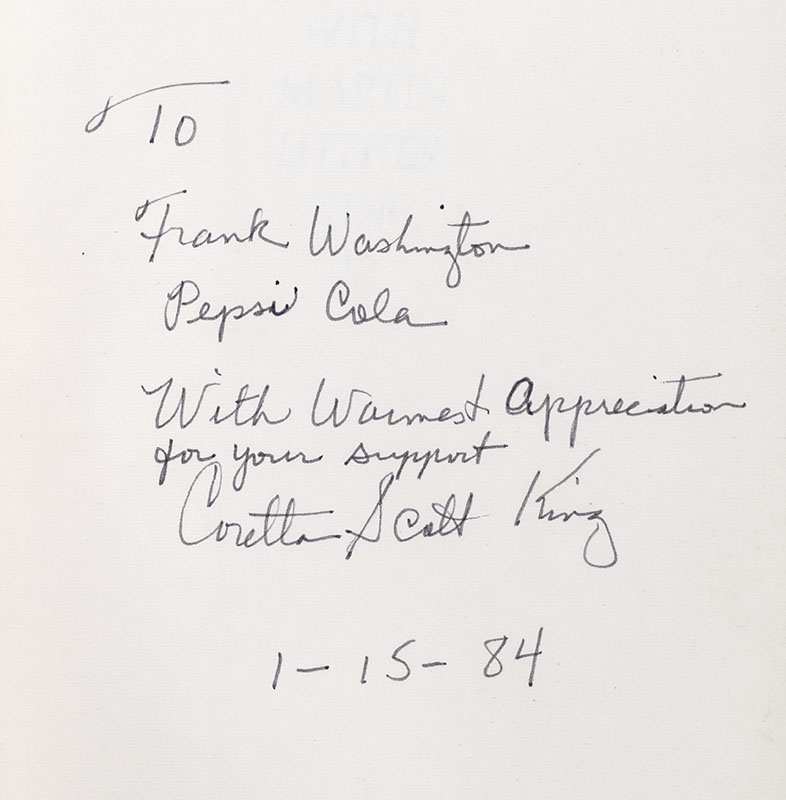 To
Frank Washington
Pepsi Cola
With Warmest Appreciation
for your support
Coretta Scott King
1-15-84